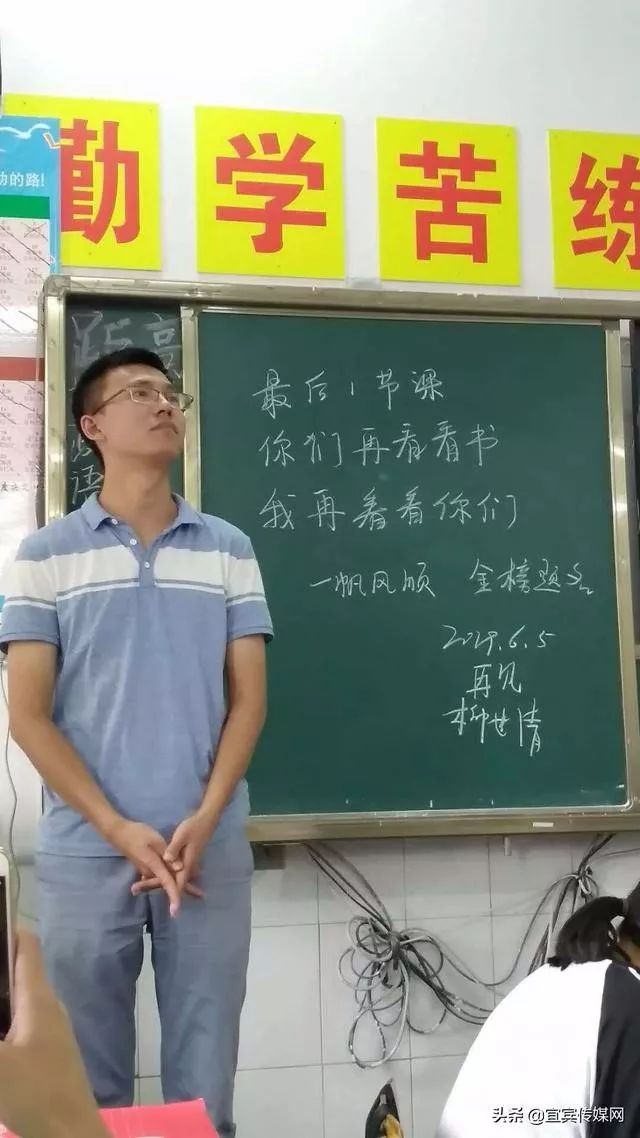 动的路!
勤学苦练
距高
语
最后1节课
你们再看看书
我再看看你们
一帆风顺 金榜题名
2019.6.5
再见
柳世清
头条@宜宾传媒网